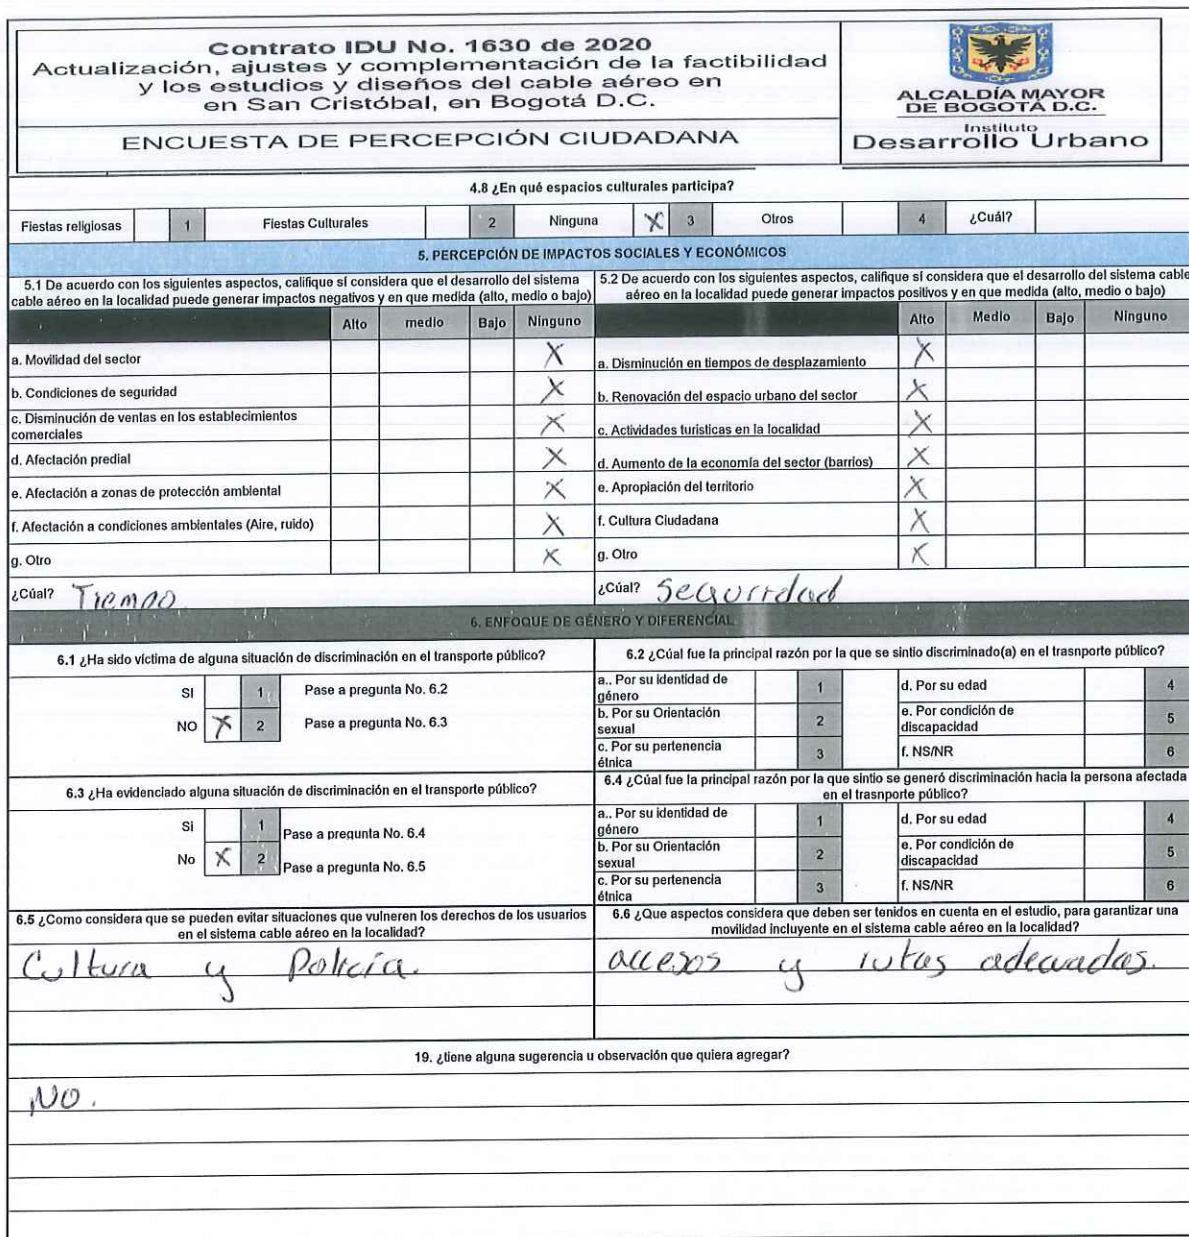 Contrato IDU No. 1630 de 2020
Actualización, ajustes y complementación de la factibilidad
y los estudios y diseños del cable aéreo en
en San Cristóbal, en Bogotá D.C.
ENCUESTA DE PERCEPCIÓN CIUDADANA
ALCALDÍA MAYOR
DE BOGOTÁ D.C.
Instituto
Desarrollo Urbano
4.8 ¿En qué espacios culturales participa?
Fiestas religiosas 1 Fiestas Culturales 2 Ninguna X 3 Otros 4 ¿Cuál?
5. PERCEPCIÓN DE IMPACTOS SOCIALES Y ECONÓMICOS
5.1 De acuerdo con los siguientes aspectos, califique sí considera que el desarrollo del sistema
cable aéreo en la localidad puede generar impactos negativos y en que medida (alto, medio o bajo)
Alto medio Bajo Ninguno
a. Movilidad del sector X
b. Condiciones de seguridad X
c. Disminución de ventas en los establecimientos
comerciales X
d. Afectación predial X
e. Afectación a zonas de protección ambiental X
f. Afectación a condiciones ambientales (Aire, ruido) X
g. Otro X
¿Cúal? Tiempo
5.2 De acuerdo con los siguientes aspectos, califique sí considera que el desarrollo del sistema cable
aéreo en la localidad puede generar impactos positivos y en que medida (alto, medio o bajo)
Alto Medio Bajo Ninguno
a. Disminución en tiempos de desplazamiento X
b. Renovación del espacio urbano del sector X
c. Actividades turisticas en la localidad X
d. Aumento de la economía del sector (barrios) X
e. Apropiación del territorio X
f. Cultura Ciudadana X
g. Otro X
¿Cúal? Seguridad
6. ENFOQUE DE GÉNERO Y DIFERENCIAL
6.1 ¿Ha sido víctima de alguna situación de discriminación en el transporte público?
SI 1 Pase a pregunta No. 6.2
NO X 2 Pase a pregunta No. 6.3
6.2 ¿Cúal fue la principal razón por la que se sintio discriminado(a) en el trasnporte público?
a.. Por su identidad de
género 1
d. Por su edad 4
b. Por su Orientación
sexual 2
e. Por condición de
discapacidad 5
c. Por su pertenencia
étnica 3
f. NS/NR 6
6.3 ¿Ha evidenciado alguna situación de discriminación en el transporte público?
Si 1 Pase a pregunta No. 6.4
No X 2 Pase a pregunta No. 6.5
6.4 ¿Cúal fue la principal razón por la que sintio se generó discriminación hacia la persona afectada
en el trasnporte público?
a.. Por su identidad de
género 1
d. Por su edad 4
b. Por su Orientación
sexual 2
e. Por condición de
discapacidad 5
c. Por su pertenencia
étnica 3
f. NS/NR 6
6.5 ¿Como considera que se pueden evitar situaciones que vulneren los derechos de los usuarios
en el sistema cable aéreo en la localidad?
Cultura y Policía.
6.6 ¿Que aspectos considera que deben ser tenidos en cuenta en el estudio, para garantizar una
movilidad incluyente en el sistema cable aéreo en la localidad?
accesos y rutas adecuadas.
19. ¿tiene alguna sugerencia u observación que quiera agregar?
NO.